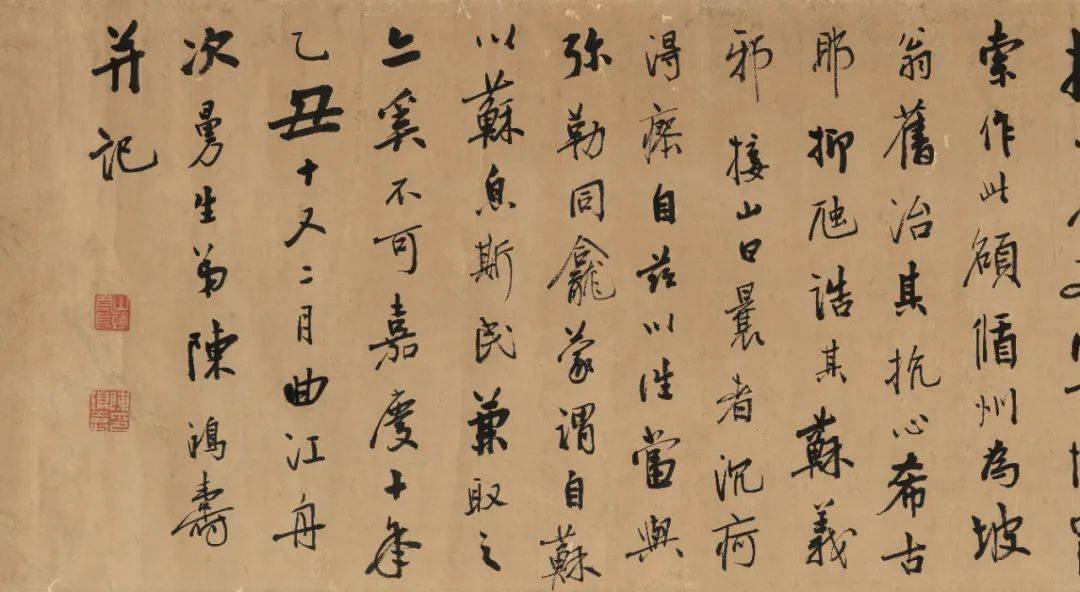 索作此顧循州為坡
翁舊治其抗心希古
耶抑其蘇義
邪接山曰曩者沉痾
得瘳自茲以往當與
弥勒同龕蒙謂自蘇
以蘇息斯民兼取之
亦奚不可嘉慶十年
乙丑十又二月曲江舟
次曼生弟陳鴻壽
并記